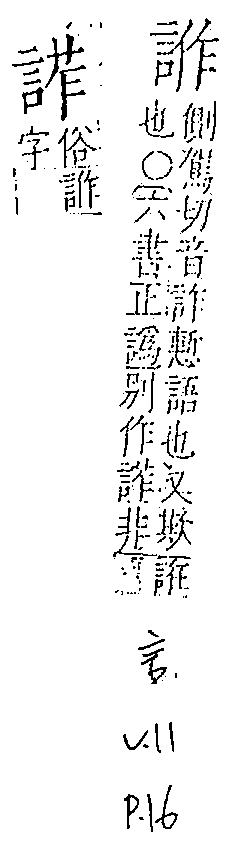 詐
側駕切音詐慙語也又欺誑
也○六書正譌別作非
俗詐
字
言.
V.11
P.16